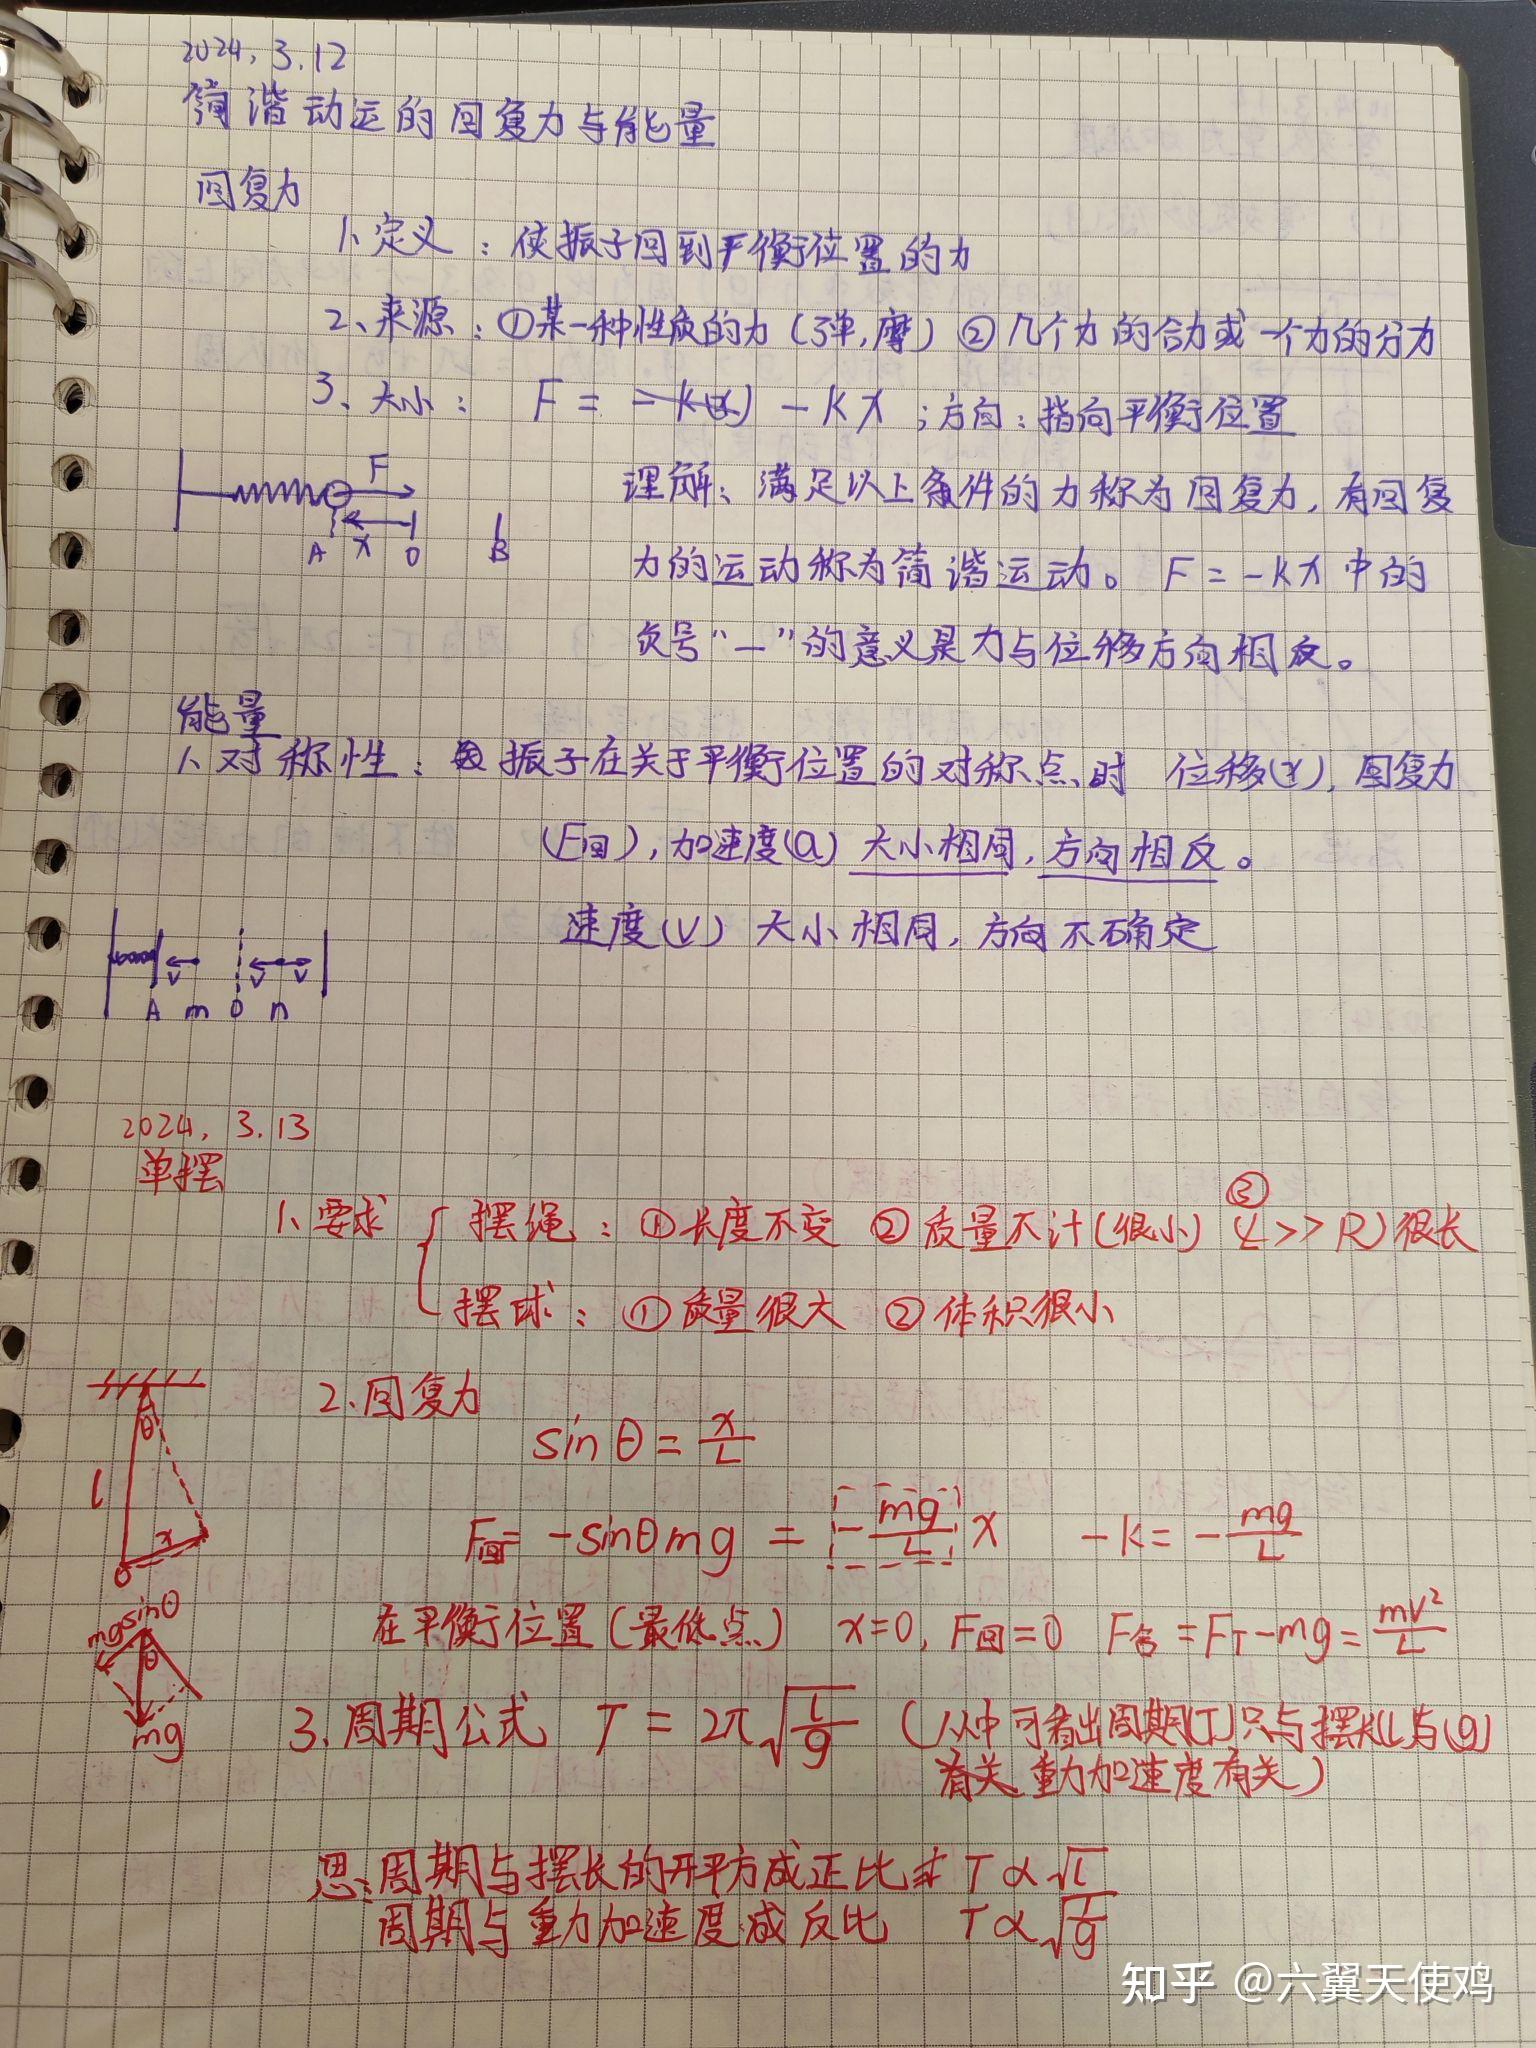 2024, 3.12
简谐动运的回复力与能量
回复力
1、定义：使振子回到平衡位置的力
2、来源：①某一种性质的力（弹,摩）②几个力的合力或一个力的分力
3、大小： F = -kx ；方向：指向平衡位置
F
A x O B
理解：满足以上条件的力称为回复力，有回复
力的运动称为简谐运动。 F=-kx中的
负号“—”的意义是力与位移方向相反。
能量
1、对称性：振子在关于平衡位置的对称点时 位移(x)，回复力
(F回)，加速度(a) 大小相同，方向相反。
速度(v) 大小相同，方向不确定
v v v
A m O n
2024, 3.13
单摆
1、要求 { 摆绳：①长度不变 ②质量不计(很小) ③(L>>R)很长
摆球：①质量很大 ②体积很小
2、回复力
sinθ = x/L
F回= -sinθmg = -mg/L x -k = -mg/L
在平衡位置(最低点) x=0, F回=0 F合=FT-mg=mv²/L
θ
l
x
mgsinθ
θ
mg
3、周期公式 T = 2π√(l/g) (从中可看出周期(T)只与摆长(L)与(g)
有关 重力加速度有关)
思：周期与摆长的开平方成正比 T∝√l
周期与重力加速度成反比 T∝√(1/g)
知乎 @六翼天使鸡